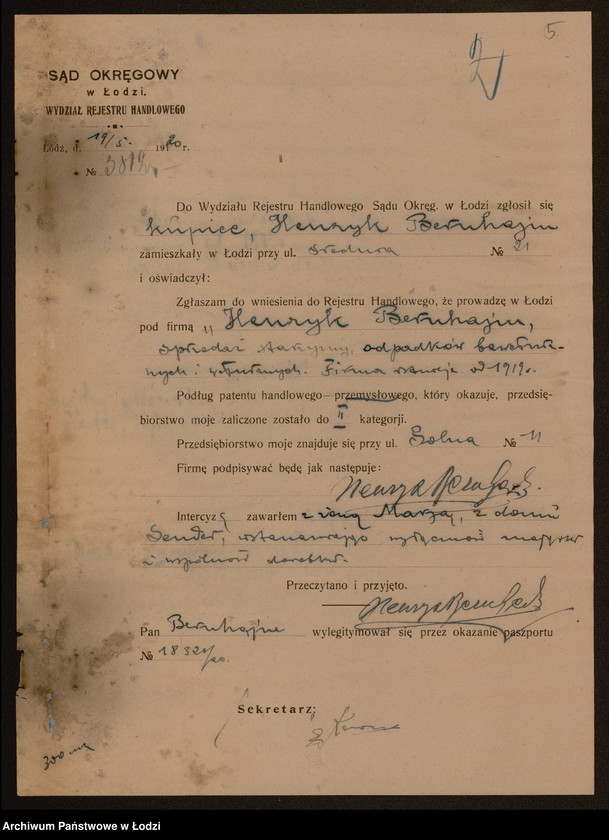 5
2
SĄD OKRĘGOWY
w Łodzi.
WYDZIAŁ REJESTRU HANDLOWEGO
Łódź, d. 19/5. 1920 r.
№ 3812.-
Do Wydziału Rejestru Handlowego Sądu Okręg. w Łodzi zgłosił się
kupiec, Henryk Bernhajm
zamieszkały w Łodzi przy ul. Średnia № 21
i oświadczył:
Zgłaszam do wniesienia do Rejestru Handlowego, że prowadzę w Łodzi
pod firmą „Henryk Bernhajm,
sprzedaż odpadków bawełnia-
nych i wełnianych. Firma istnieje od 1919 r.
Podług patentu handlowego przemysłowego, który okazuje, przedsię-
biorstwo moje zaliczone zostało do II kategorji.
Przedsiębiorstwo moje znajduje się przy ul. Solna № 11
Firmę podpisywać będę jak następuje:
Intercyzę zawarłem z żoną Marją, z domu
Sender, ustanawiającą wyłączność majątku
i wspólność dorobku.
Przeczytano i przyjęto.
Pan Bernhajm wylegitymował się przez okazanie paszportu
№ 18321/20.
Sekretarz:
300 mk
Archiwum Państwowe w Łodzi